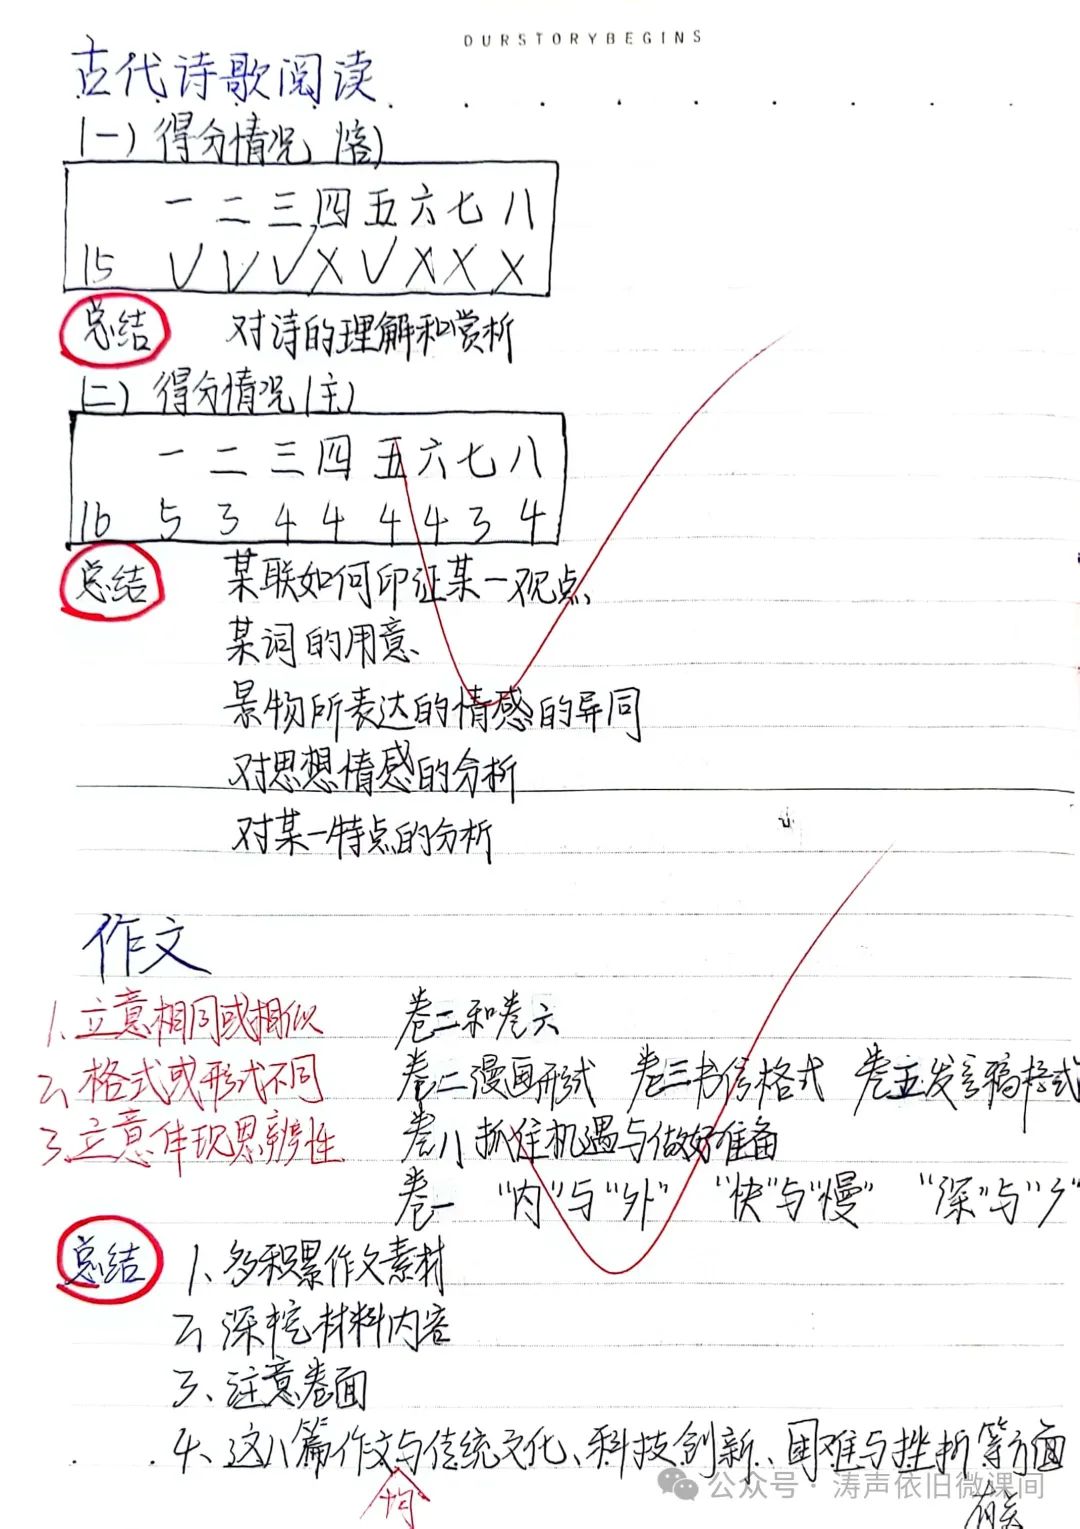 OURSTORYBEGINS
古代诗歌阅读
(一) 得分情况 (客)
一 二 三 四 五 六 七 八
15 √ √ √ × √ × × ×
总结 对诗的理解和赏析
(二) 得分情况 (主)
一 二 三 四 五 六 七 八
16 5 3 4 4 4 4 3 4
总结 某联如何印证某一观点、
某词的用意、
景物所表达的情感的异同
对思想情感的分析
对某一特点的分析
作文
1、立意相同或相似 卷二和卷六
2、格式或形式不同 卷二漫画形式 卷三书信格式 卷五发言稿格式
3、立意体现思辨性 卷八抓住机遇与做好准备
卷一 “内”与“外” “快”与“慢” “深”与
总结 1、多积累作文素材
2、深挖材料内容
3、注意卷面
4、这八篇作文均与传统文化、科技创新、困难与挫折等方面
有关
公众号 · 涛声依旧微课间